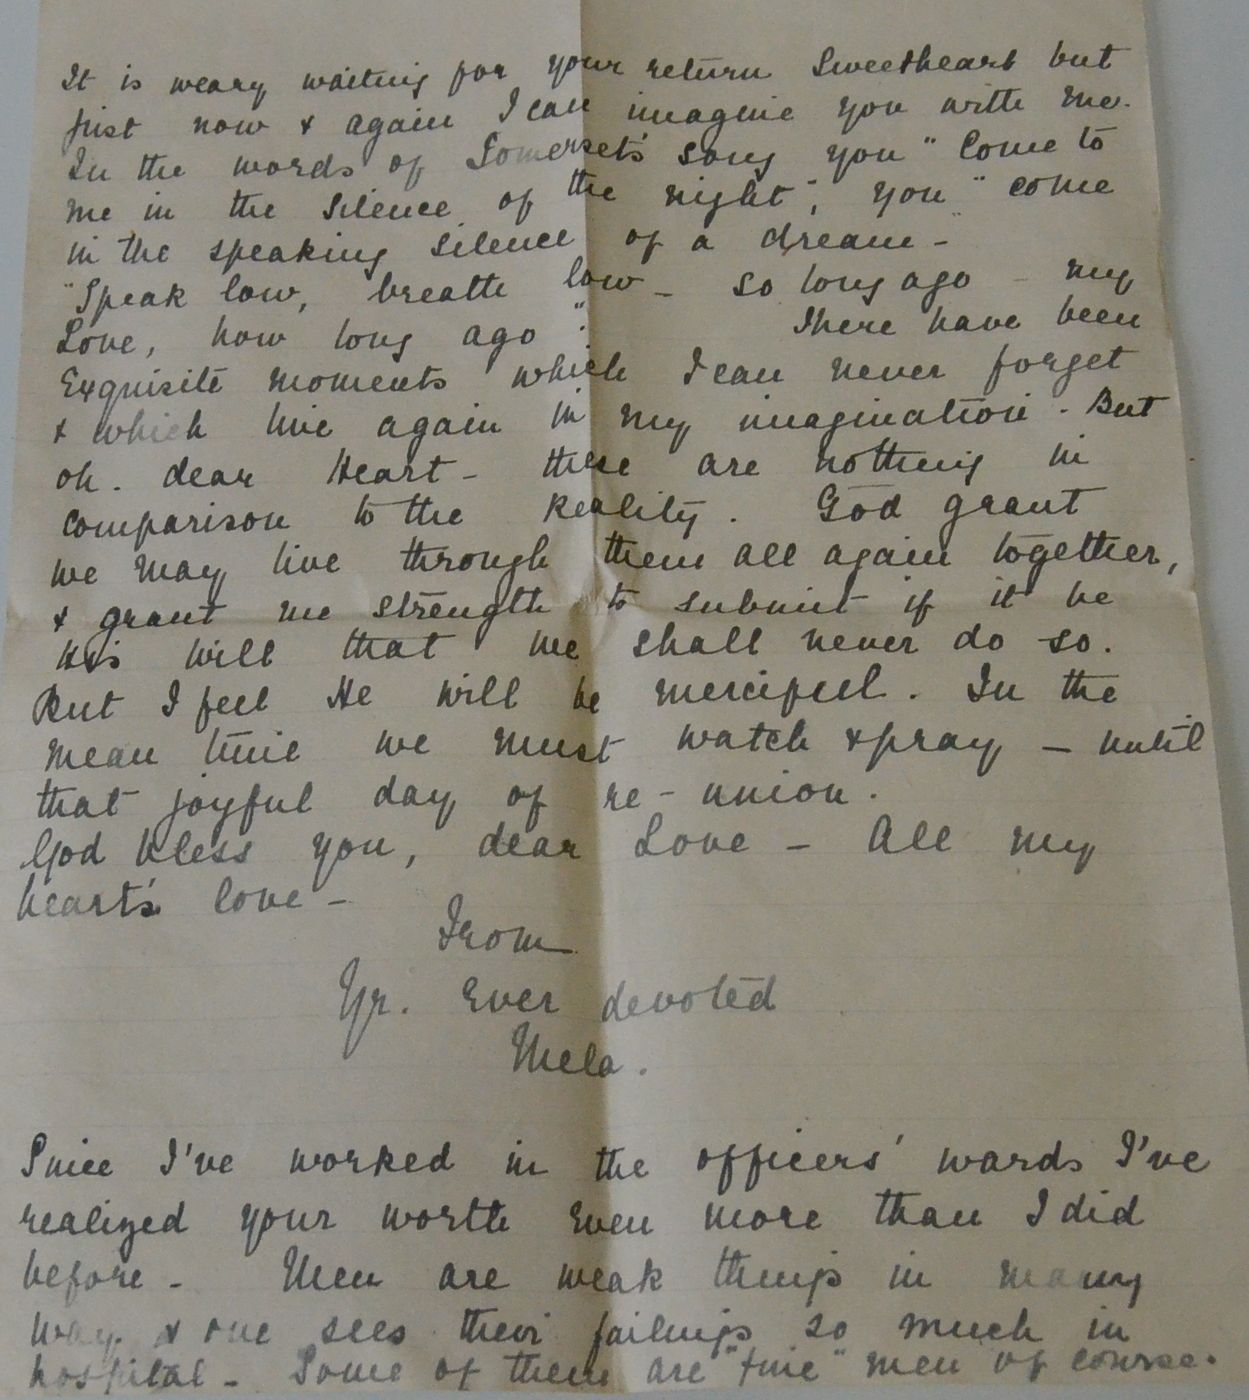 It is weary waiting for your return Sweetheart but
just now & again I can imagine you with me.
In the words of Somerset's song you "Come to
me in the silence of the night", you "come
in the speaking silence of a dream -
"Speak low, breathe low - so long ago - my
Love, how long ago". There have been
Exquisite moments which I can never forget
& which live again in my imagination. But
oh. dear Heart - these are nothing in
comparison to the Reality. God grant
we may live through them all again together,
& grant me strength to submit if it be
His will that we shall never do so.
But I feel He will be merciful. In the
mean time we must watch & pray - until
that joyful day of re-union.
God bless you, dear Love - All my
heart's love -
From
Yr. Ever devoted
Mela.
Since I've worked in the officers' wards I've
realized your worth even more than I did
before - Men are weak things in many
way & one sees their failings so much in
hospital - Some of them are "fine" men of course.